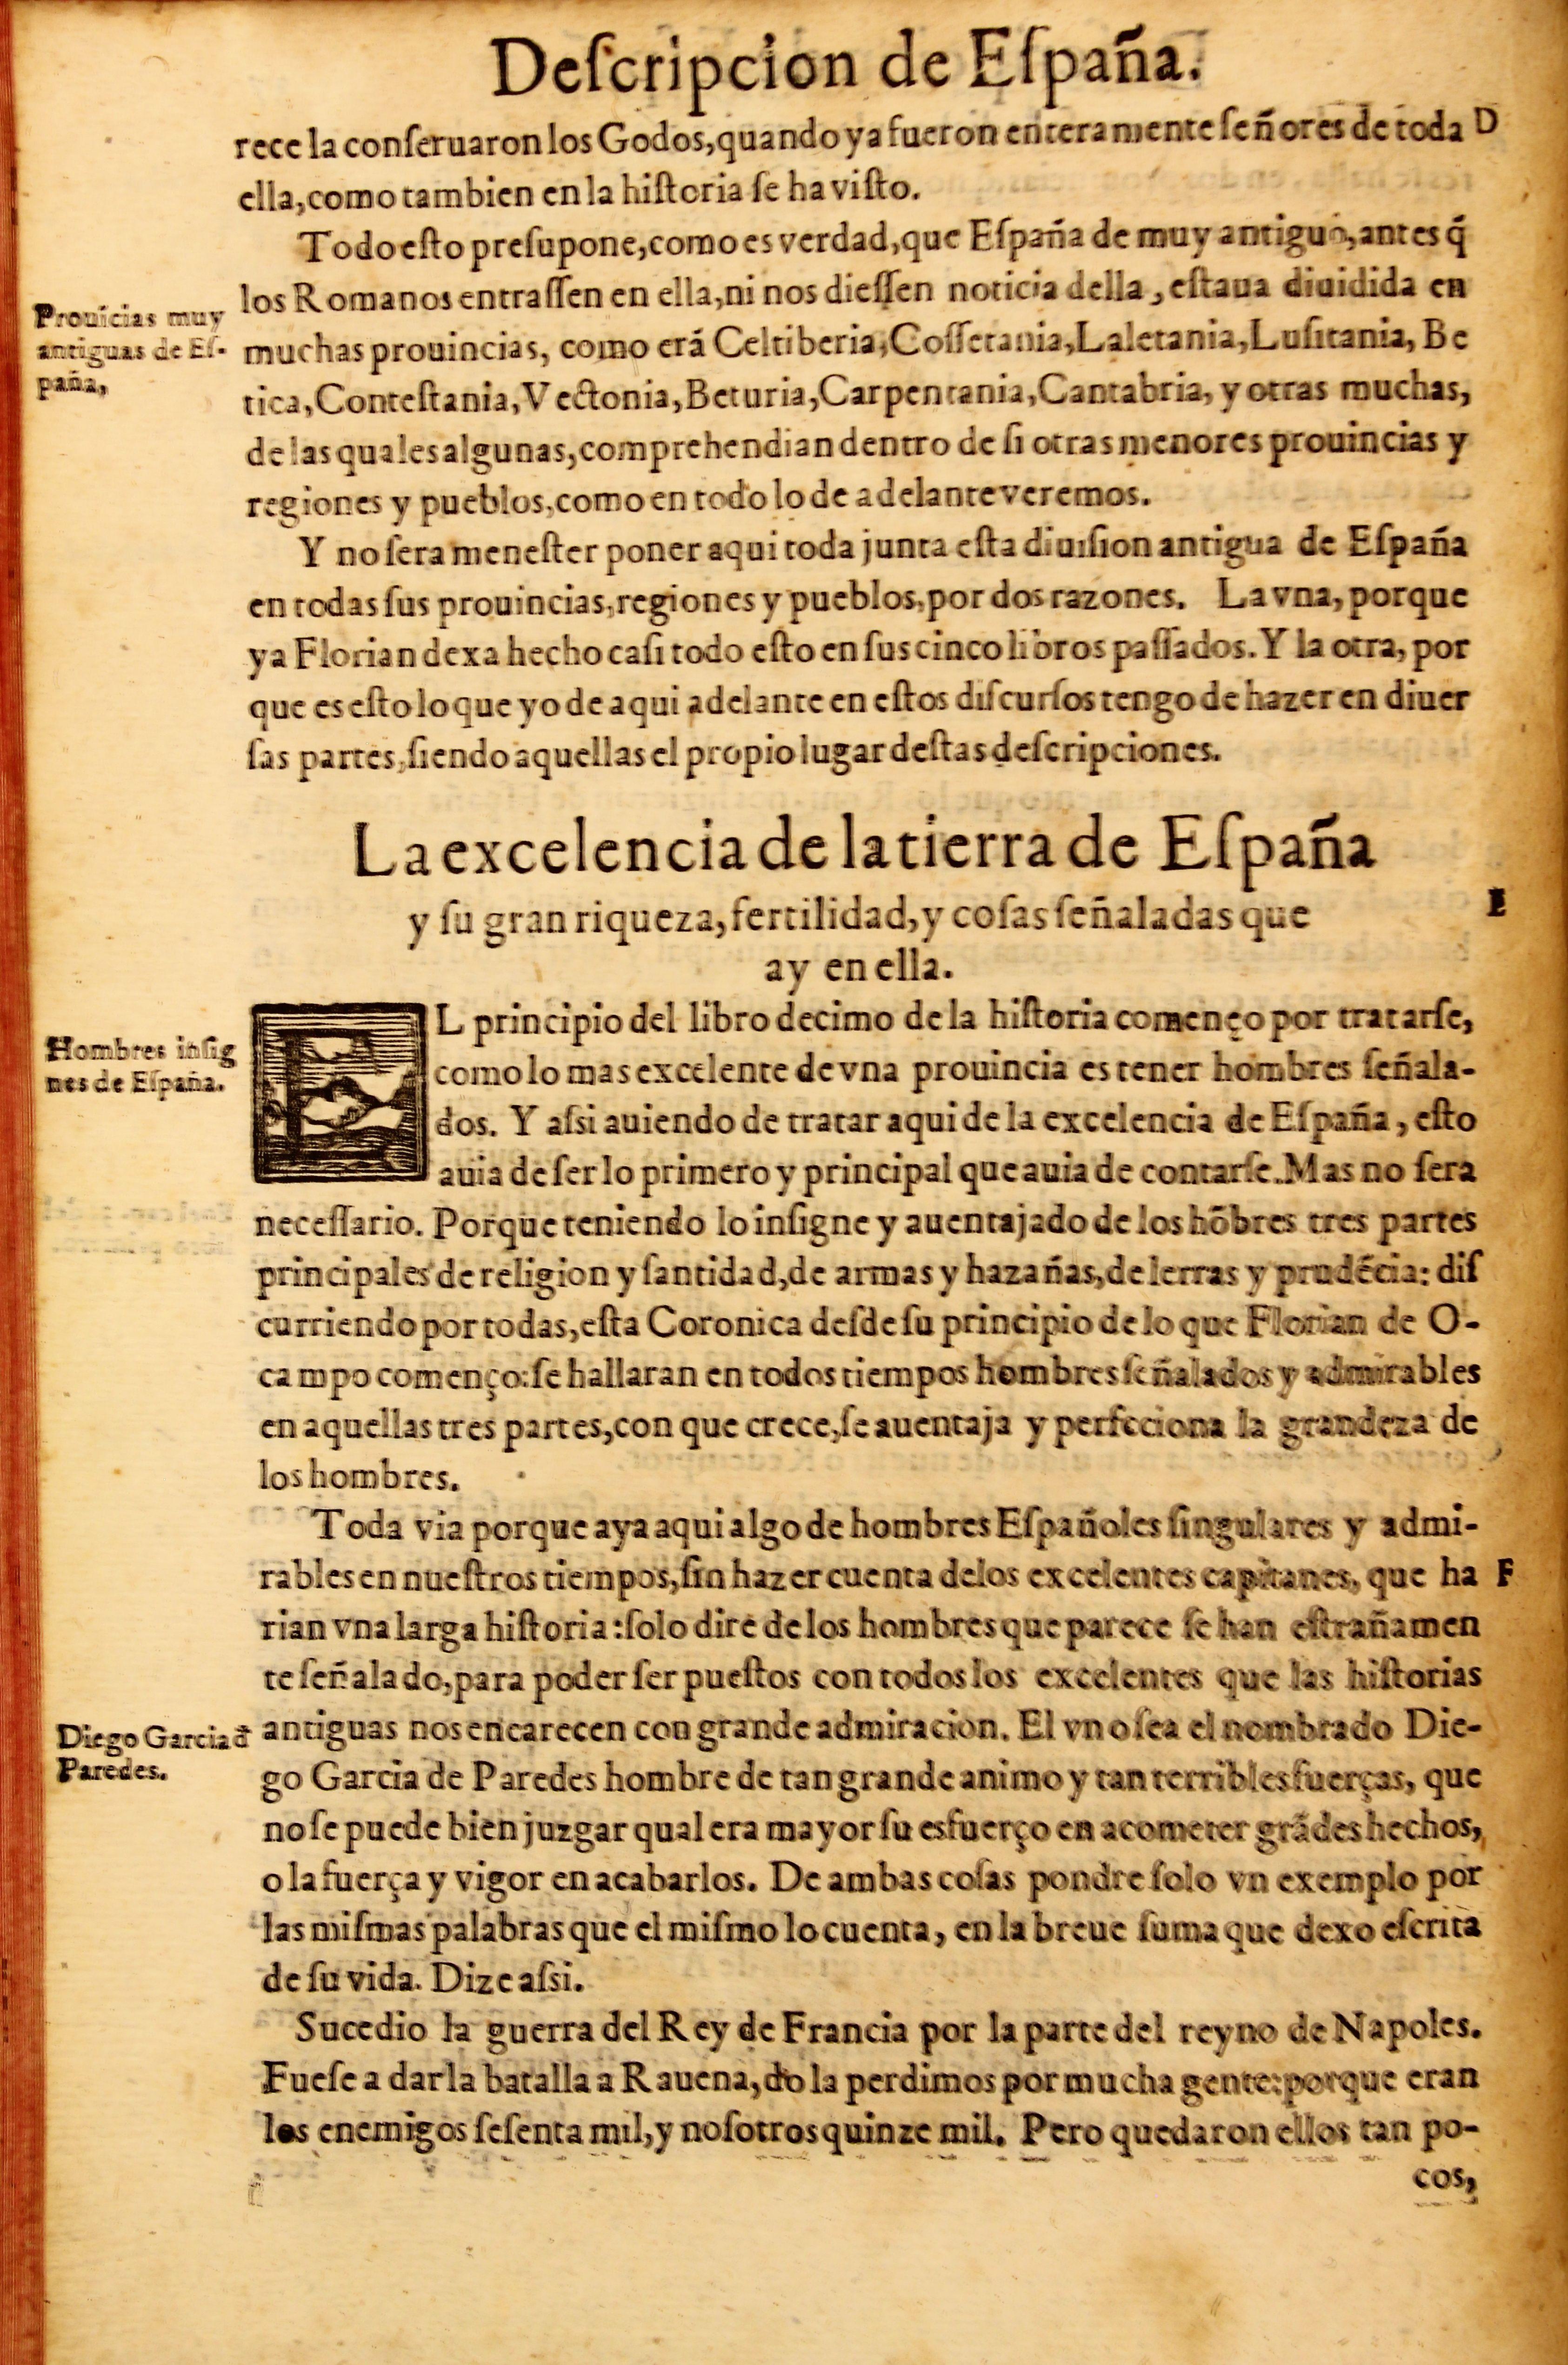 Deſcripcion de Eſpaña.
rece la conſeruaron los Godos, quando ya fueron enteramente ſeñores de toda D
ella, como tambien en la hiſtoria ſe ha viſto.
Todo eſto preſupone, como es verdad, que Eſpaña de muy antiguo, antes q̃
los Romanos entraſſen en ella, ni nos dieſſen noticia della, eſtaua diuidida en
Prouīcias muy
antiguas de Eſ-
paña,
muchas prouincias, como erā Celtiberia, Coſſetania, Laletania, Luſitania, Be
tica, Conteſtania, Vectonia, Beturia, Carpentania, Cantabria, y otras muchas,
de las quales algunas, comprehendian dentro de ſi otras menores prouincias y
regiones y pueblos, como en todo lo de adelante veremos.
Y no ſera meneſter poner aqui toda junta eſta diuiſion antigua de Eſpaña
en todas ſus prouincias, regiones y pueblos, por dos razones. La vna, porque
ya Florian dexa hecho caſi todo eſto en ſus cinco libros paſſados. Y la otra, por
que es eſto lo que yo de aqui adelante en eſtos diſcurſos tengo de hazer en diuer
ſas partes, ſiendo aquellas el propio lugar deſtas deſcripciones.
La excelencia de la tierra de Eſpaña
y ſu gran riqueza, fertilidad, y coſas ſeñaladas que
E
ay en ella.
Hombres inſig
nes de Eſpaña.
EL principio del libro decimo de la hiſtoria començo por tratarſe,
como lo mas excelente de vna prouincia es tener hombres ſeñala-
dos. Y aſsi auiendo de tratar aqui de la excelencia de Eſpaña, eſto
auia de ſer lo primero y principal que auia de contarſe. Mas no ſera
neceſſario. Porque teniendo lo inſigne y auentajado de los hōbres tres partes
principales de religion y ſantidad, de armas y hazañas, de letras y prudēcia: diſ
curriendo por todas, eſta Coronica deſde ſu principio de lo que Florian de O-
campo començo: ſe hallaran en todos tiempos hombres ſeñalados y admirables
en aquellas tres partes, con que crece, ſe auentaja y perfeciona la grandeza de
los hombres.
Toda via porque aya aqui algo de hombres Eſpañoles ſingulares y admi-
rables en nueſtros tiempos, ſin hazer cuenta de los excelentes capitanes, que ha F
rian vna larga hiſtoria: ſolo dire de los hombres que parece ſe han eſtrañamen
te ſeñalado, para poder ſer pueſtos con todos los excelentes que las hiſtorias
Diego Garcia đ
Paredes.
antiguas nos encarecen con grande admiracion. El vno ſea el nombrado Die-
go Garcia de Paredes hombre de tan grande animo y tan terribles fuerças, que
no ſe puede bien juzgar qual era mayor ſu esfuerço en acometer grādes hechos,
o la fuerça y vigor en acabarlos. De ambas coſas pondre ſolo vn exemplo por
las miſmas palabras que el miſmo lo cuenta, en la breue ſuma que dexo eſcrita
de ſu vida. Dize aſsi.
Sucedio la guerra del Rey de Francia por la parte del reyno de Napoles.
Fueſe a dar la batalla a Rauena, do la perdimos por mucha gente: porque eran
los enemigos ſeſenta mil, y noſotros quinze mil. Pero quedaron ellos tan po-
cos,